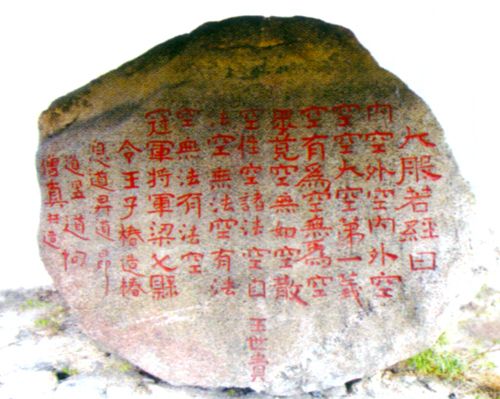 大般若經曰
內空外空內外空
空空大空第一義
空有為空無為空
畢竟空無始空散
空性空諸法空自
王世貴
法空無法空有法
空無法有法空
冠軍將軍梁父縣
令王子椿造椿
息道昇道昂
道昱道恂
僧真共造